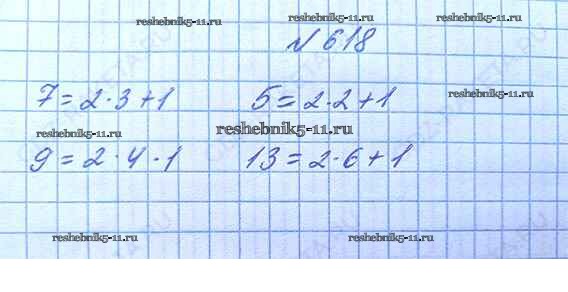 reshebnik5-11.ru reshebnik5-11.ru
№ 618
reshebnik5-11.ru
7 = 2 · 3 + 1 5 = 2 · 2 + 1
reshebnik5-11.ru reshebnik5-11.ru
9 = 2 · 4 · 1 13 = 2 · 6 + 1
reshebnik5-11.ru reshebnik5-11.ru